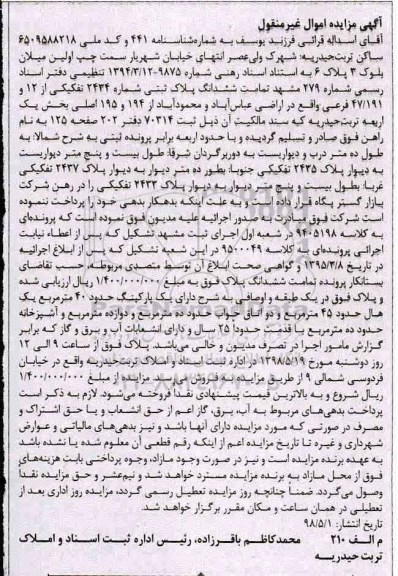 آگهی مزایده اموال غیرمنقول
آقای اسداله قرائی فرزند یوسف به شماره‌شناسنامه ۴۴۱ و کد ملی ۶۵۰۹۵۸۸۲۱۸
ساکن تربت‌حیدریه: شهرک ولی‌عصر انتهای خیابان شهریار سمت چپ اولین میلان
بلوک ۳ پلاک ۶ به استناد اسناد رهنی شماره ۹۸۷۵-۱۳۹۴/۳/۱۲ تنظیمی دفتر اسناد
رسمی شماره ۲۷۹ مشهد تمامت ششدانگ پلاک ثبتی شماره ۲۴۳۴ تفکیکی از ۱۲ و
۴۷/۱۹۱ فرعی واقع در اراضی عباس‌آباد و محمودآباد از ۱۹۴ و ۱۹۵ اصلی بخش یک
اربعه تربت‌حیدریه که سند مالکیت آن ذیل ثبت ۷۰۳۱۴ دفتر ۲۰۲ صفحه ۱۲۵ به نام
راهن فوق صادر و تسلیم گردیده و با حدود اربعه برابر پرونده ثبتی به شرح شمالا: به
طول ده متر درب و دیواریست به دوربرگردان شرقا: طول بیست و پنج متر دیواریست
به دیوار پلاک ۲۴۳۵ تفکیکی جنوبا: بطور ده متر دیوار به دیوار پلاک ۲۴۳۷ تفکیکی
غربا: بطول بیست و پنج متر دیوار به دیوار پلاک ۲۴۳۳ تفکیکی را در رهن شرکت
پازار گستر پگاه قرار داده است و به علت اینکه بدهکار بدهی خود را پرداخت ننموده
است شرکت فوق مبادرت به صدور اجرائیه علیه مدیون فوق نموده است که پرونده‌ای
به کلاسه ۹۴۰۵۱۹۸ در شعبه اول اجرای ثبت مشهد تشکیل که پس از اعطاء نیابت
اجرائی پرونده‌ای به کلاسه ۹۵۰۰۰۴۹ در این شعبه تشکیل که پس از ابلاغ اجرائیه
در تاریخ ۱۳۹۵/۳/۸ و گواهی صحت ابلاغ آن توسط متصدی مربوطه، حسب تقاضای
بستانکار پرونده تمامت ششدانگ پلاک فوق به مبلغ ۱/۴۰۰/۰۰۰/۰۰۰ ریال ارزیابی شده
و پلاک فوق در یک طبقه و اوصافی به شرح دارای یک پارکینگ حدود ۴۰ مترمربع یک
هال حدود ۴۵ مترمربع و دو اتاق خواب حدود ده مترمربع و دوازده مترمربع و آشپزخانه
حدود ده مترمربع با قدمت حدودا ۲۵ سال و دارای انشعابات آب و برق و گاز که برابر
گزارش مامور اجرا در تصرف مدیون و خالی می‌باشد. پلاک فوق از ساعت ۹ الی ۱۲
روز دوشنبه مورخ ۱۳۹۸/۵/۱۹ در اداره ثبت اسناد و املاک تربت‌حیدریه واقع در خیابان
فردوسی شمالی ۹ از طریق مزایده به فروش می‌رسد. مزایده از مبلغ ۱/۴۰۰/۰۰۰/۰۰۰
ریال شروع و به بالاترین قیمت پیشنهادی نقدا فروخته می‌شود. لازم به ذکر است
پرداخت بدهی‌های مربوط به آب، برق، گاز اعم از حق انشعاب و یا حق اشتراک و
مصرف در صورتی که مورد مزایده دارای آنها باشد و نیز بدهی‌های مالیاتی و عوارض
شهرداری و غیره تا تاریخ مزایده اعم از اینکه رقم قطعی آن معلوم شده یا نشده باشد
به عهده برنده مزایده است و نیز در صورت وجود مازاد، وجوه پرداختی بابت هزینه‌های
فوق از محل مازاد به برنده مزایده مسترد خواهد شد و نیم‌عشر و حق مزایده نقدا
وصول می‌گردد. ضمنا چنانچه روز مزایده تعطیل رسمی گردد، مزایده روز اداری بعد از
تعطیلی در همان ساعت و مکان مقرر برگزار خواهد شد.
تاریخ انتشار: ۹۸/۵/۱
م الف ۲۱۰ محمدکاظم باقرزاده، رئیس اداره ثبت اسناد و املاک
تربت حیدریه